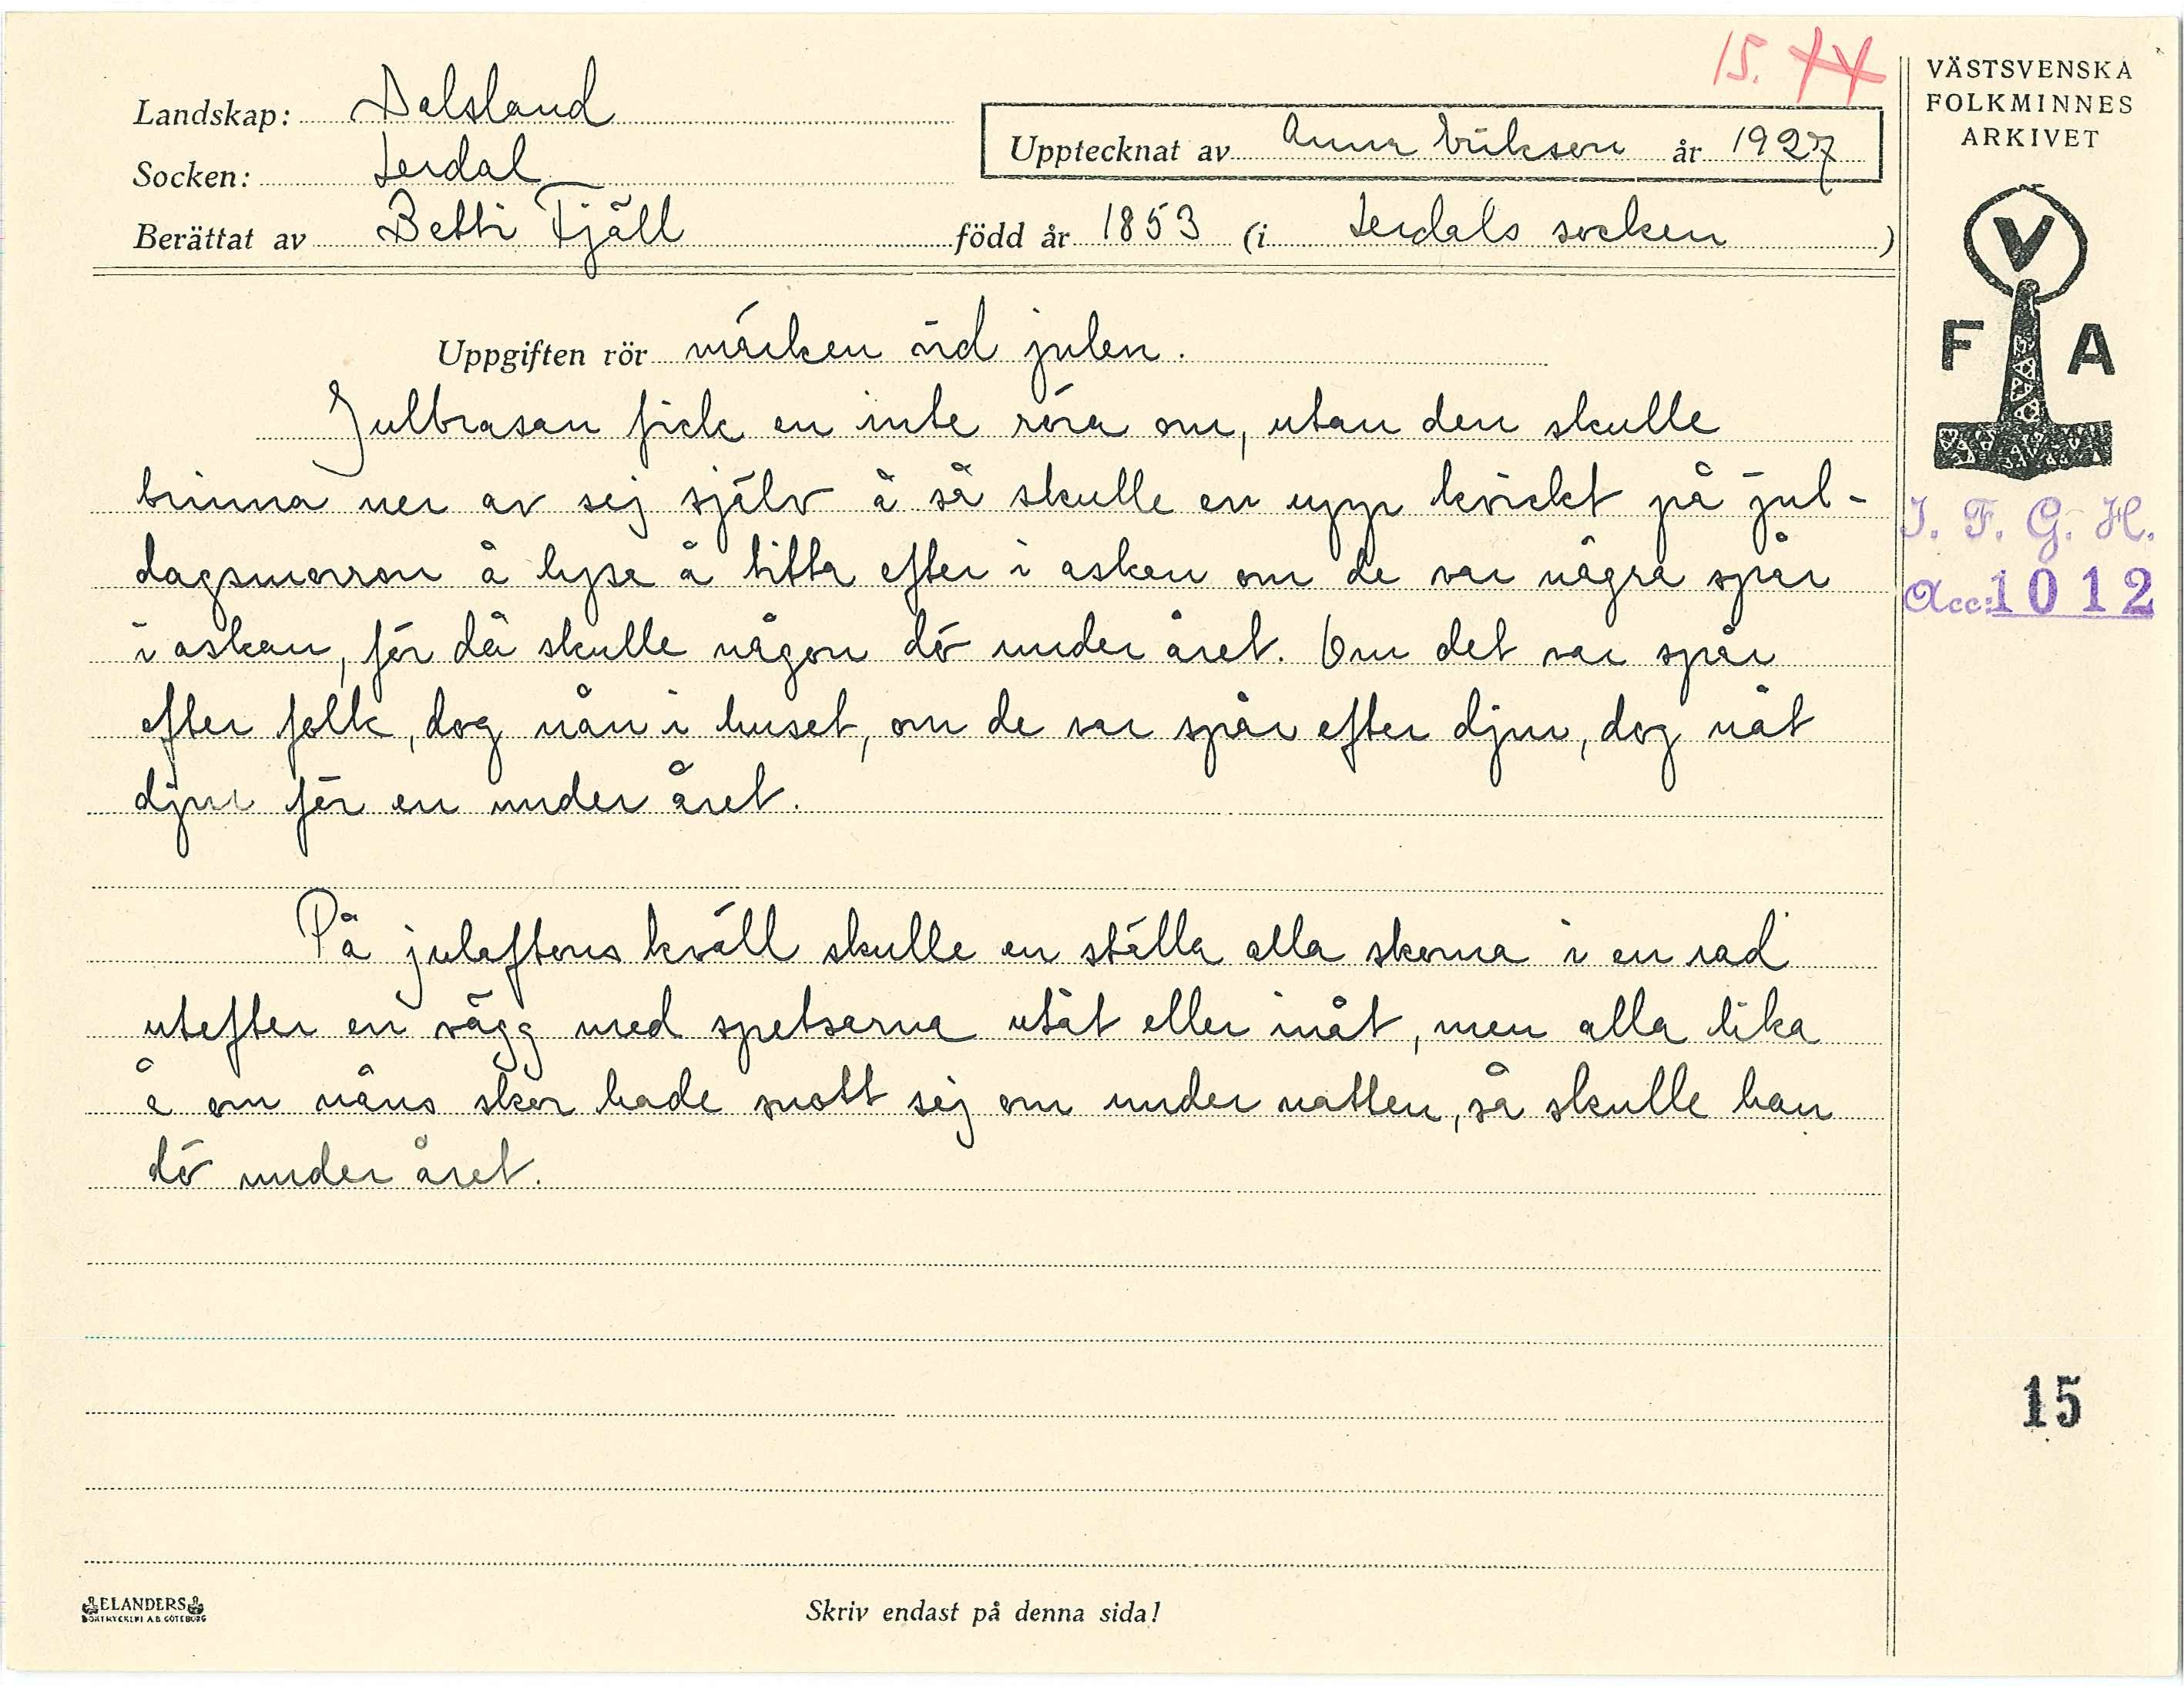 15. 44
Landskap: Dalsland
Socken: Lerdal
Berättat av Betti Fjäll
Upptecknat av Anna Erikson år 1927
född år 1853 (i Lerdals socken)
VÄSTSVENSKA
FOLKMINNES
ARKIVET
V
F A
I. F. G. H.
Acc: 1012
Uppgiften rör märken vid julen.
Julbrasan fick en inte röra om, utan den skulle
brinna ner av sej själv å så skulle en upp kvickt på jul-
dagsmorron å lysa å titta efter i askan om de var några spår
i askan, för då skulle någon dö under året. Om det var spår
efter folk, dog nån i huset, om de var spår efter djur, dog nåt
djur för en under året.
På juleftons kväll skulle en ställa alla skorna i en rad
utefter en vägg med spetsarna utåt eller inåt, men alla lika
å om nåns skor hade snott sej om under natten, så skulle han
dö under året.
15
ELANDERS
BOKTRYCKERI A.B. GÖTEBORG
Skriv endast på denna sida!